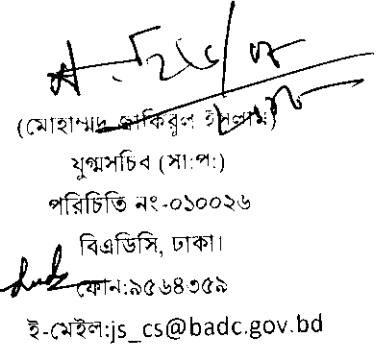 (মোহাম্মদ জাকিরুল ইসলাম)
যুগ্মসচিব (সা:প:)
পরিচিতি নং-০১০০২৬
বিএডিসি, ঢাকা।
ফোন:৯৫৬৪৩৫৯
ই-মেইল:js_cs@badc.gov.bd